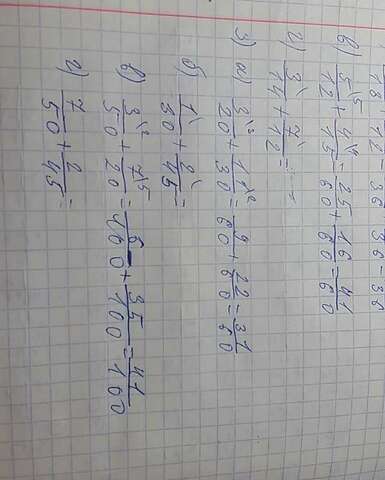 18 12 36 36 36
в) 5\5/12 + 4\4/15 = 25/60 + 16/60 = 41/60
г) 3\/14 + 7\/12 =
3) а) 3\3/20 + 11\2/30 = 9/60 + 22/60 = 31/60
б) 1\/30 + 2\/45 =
в) 3\2/50 + 7\5/20 = 6/100 + 35/100 = 41/100
г) 7/50 + 2/45 =